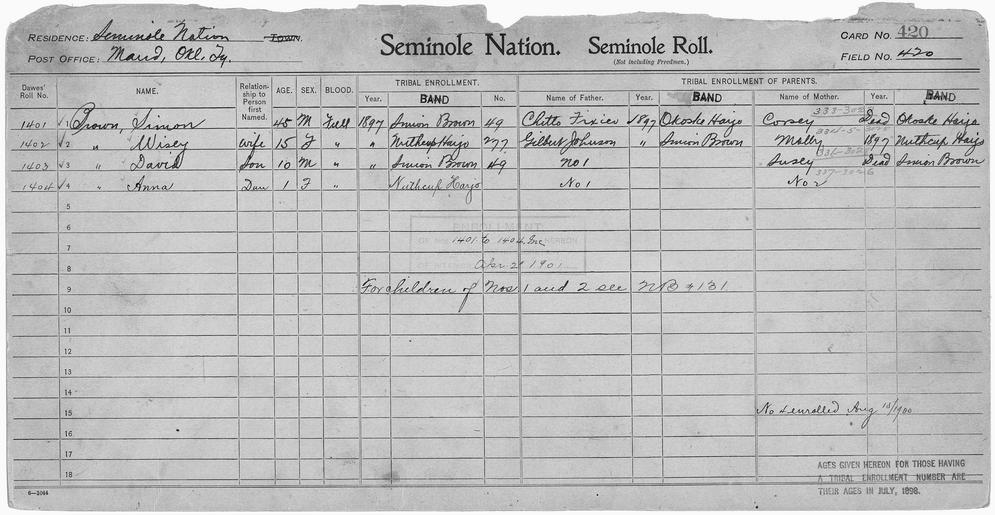 RESIDENCE: Seminole Nation TOWN. Seminole Nation. Seminole Roll. CARD NO. 420
POST OFFICE: Maud, Okl. Ty. (Not including Freedmen.) FIELD NO. 420
TRIBAL ENROLLMENT. TRIBAL ENROLLMENT OF PARENTS.
Dawes' Roll No. NAME. Relationship to Person first Named. AGE. SEX. BLOOD. Year. BAND No. Name of Father. Year. BAND Name of Mother. Year. BAND
1401 1 Brown, Simon 45 M Full 1897 Simon Brown 49 Chitto Fixico 1897 Okoske Harjo Corsey Dead Okoske Harjo
1402 2 " Wisey Wife 15 F " " Nuthcup Harjo 277 Gilbert Johnson " Simon Brown Molly 1897 Nuthcup Harjo
1403 3 " David Son 10 M " " Simon Brown 49 No 1 Susey Dead Simon Brown
1404 4 " Anna Dau 1 F " Nuthcup Harjo No 1 No 2
5
6
ENROLLMENT
7 1401 to 1404 Inc HEREON
8 Apr. 2 1901
9 For children of Nos. 1 and 2 see NB # 131
10
11
12
13
14
15 No 4 enrolled Aug 10/1900
16
17
18
AGES GIVEN HEREON FOR THOSE HAVING
A TRIBAL ENROLLMENT NUMBER ARE
THEIR AGES IN JULY, 1898.
6—2044